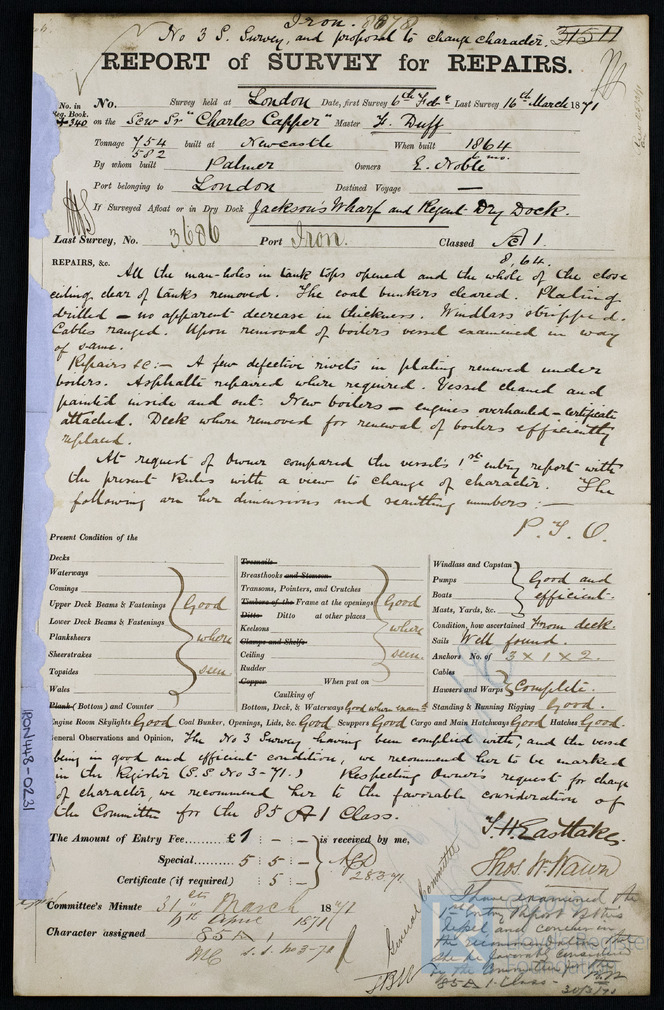 Iron. 8078
No 3 S. Survey, and proposal to change character.
REPORT of SURVEY for REPAIRS.
No. in Reg. Book. No. Survey held at London Date, first Survey 6th Feby Last Survey 16th March 1871
340 on the Scw Sr "Charles Capper" Master F. Duff
Tonnage 754 built at Newcastle When built 1864
582 mo.
By whom built Palmer Owners E. Noble
Port belonging to London Destined Voyage —
If Surveyed Afloat or in Dry Dock Jackson's Wharf and Regent Dry Dock.
Last Survey, No. 3686 Port Iron. Classed A 1.
8,64.
REPAIRS, &c. All the man-holes in tank tops opened and the whole of the close
ceiling clear of tanks removed. The coal bunkers cleared. Plating
drilled – no apparent decrease in thickness. Windlass stripped.
Cables ranged. Upon removal of boilers vessel examined in way
of same.
Repairs &c:– A few defective rivets in plating renewed under
boilers. Asphalte repaired where required. Vessel cleaned and
painted inside and out. New boilers – engines overhauled – certificate
attached. Deck where removed for renewal of boilers efficiently
replaced.
At request of Owner compared the vessel's 1st entry report with
the present Rules with a view to change of character. The
following are her dimensions and scantling numbers :–
P. T. O.
Present Condition of the
Decks
Waterways
Comings
Upper Deck Beams & Fastenings Good
Lower Deck Beams & Fastenings
Planksheers where
Sheerstrakes
Topsides seen
Wales
Plank (Bottom) and Counter
Treenails
Breasthooks and Stemson
Transoms, Pointers, and Crutches
Timbers of the Frame at the openings Good
Ditto Ditto at other places
Keelsons where
Clamps and Shelfs
Ceiling seen
Rudder
Copper When put on
Caulking of
Bottom, Deck, & Waterways Good where seen
Windlass and Capstan
Pumps Good and
Boats efficient.
Masts, Yards, &c.
Condition, how ascertained From deck.
Sails Well found.
Anchors No. of 3 x 1 x 2.
Cables
Hawsers and Warps Complete.
Standing & Running Rigging Good.
Engine Room Skylights Good Coal Bunker, Openings, Lids, &c. Good Scuppers Good Cargo and Main Hatchways Good Hatches Good.
General Observations and Opinion, The No 3 Survey having been complied with, and the vessel
being in good and efficient condition, we recommend her to be marked
in the Register (S.S. No 3–71.) Respecting Owner's request for change
of character, we recommend her to the favorable consideration of
the Committee for the 85 A 1 Class.
The Amount of Entry Fee...... £1 : – : –
is received by me,
Special........ 5 : 5 : –
28.3.71
Certificate (if required) : 5 : –
Committee's Minute 31st March 1871
4th April 1871
Character assigned 85 A 1
s. s. no 3–71
T. H. Eastlake
Thos. W. Wawn
General Committee
I have examined the
1st Entry Report of this
vessel and concur in
the recommendation that
she be favorably considered
by the Committee for the
85 A 1. Class –
30/3/71
IRON 448-0231
Lloyd's Register
Foundation